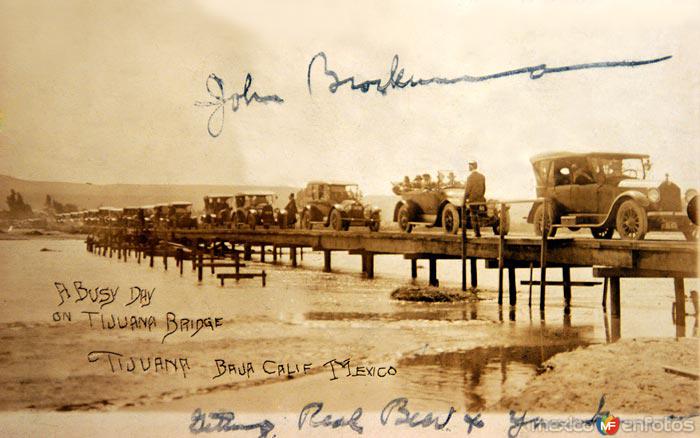 John Brockman
A BUSY DAY
ON TIJUANA BRIDGE
TIJUANA BAJA CALIF MEXICO
Getting Real Beer &
mexicoenfotos